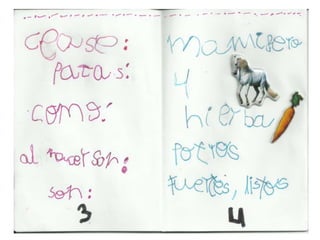 clase:
patas:
como:
al nacer son:
son:
3
mamifero
4
hierba
potros
fuertes, listos
4